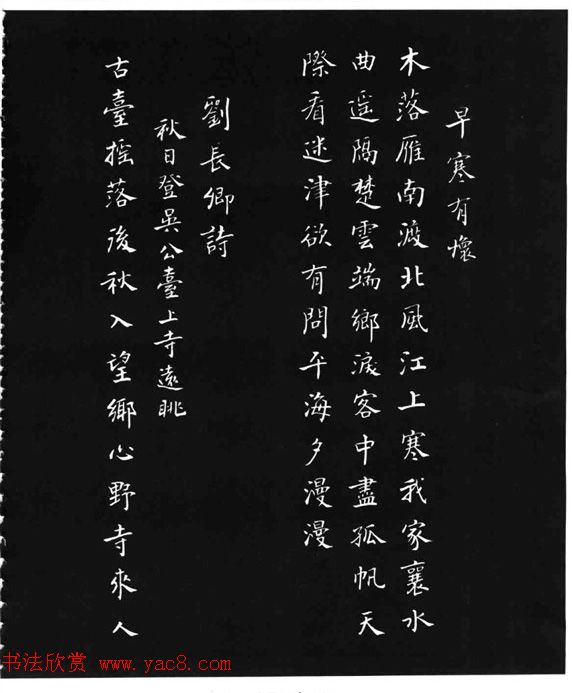 早寒有懷
木落雁南渡北風江上寒我家襄水
曲遥隔楚雲端鄉淚客中盡孤帆天
際看迷津欲有問平海夕漫漫
劉長卿詩
秋日登吳公臺上寺遠眺
古臺摇落後秋入望鄉心野寺來人
书法欣赏 www.yac8.com